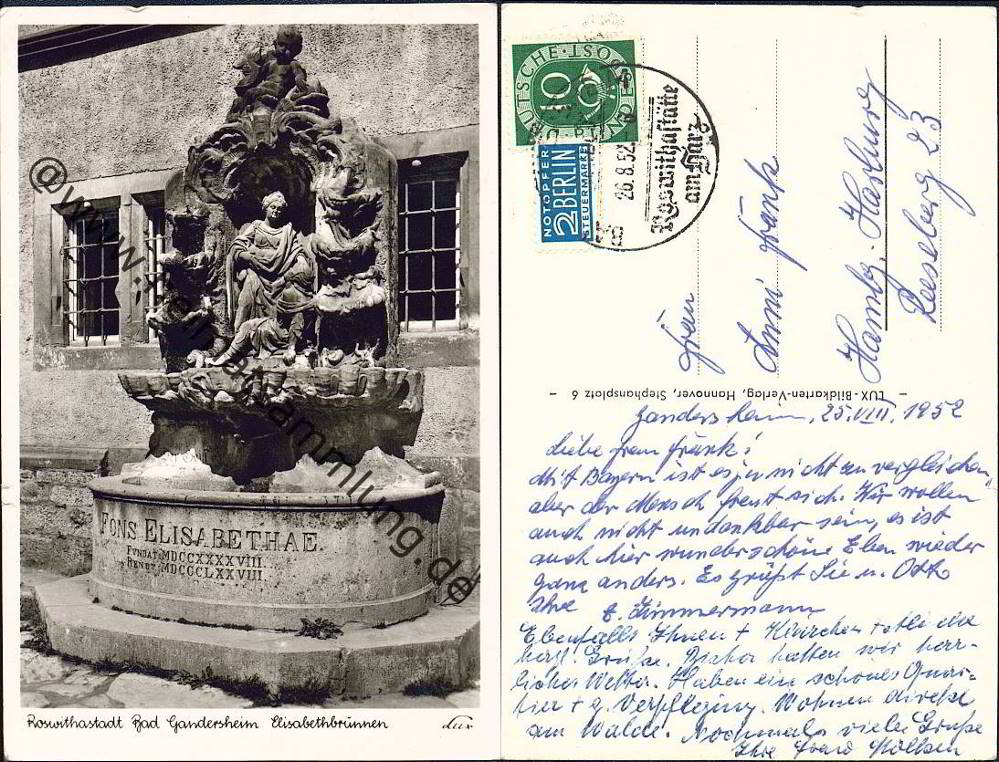 FONS ELISABETHAE.
FVNDAT MDCCXXXXVIII.
RENOT MDCCCLXXVIII.
Roswithastadt Bad Gandersheim Elisabethbrunnen
Lux
@www.heimatsammlung.de
DEUTSCHE·BUNDESPOST
10
NOTOPFER
2 BERLIN
STEUERMARKE
26.8.52
Roswithastätte
am Harz
Frau
Anni Frank
Hambg.-Harburg
Reeseberg 23
– LUX-Bildkarten-Verlag, Hannover, Stephansplatz 6 –
Gandersheim, 25.VIII.1952
Liebe Frau Frank!
Mit Bayern ist es ja nicht zu vergleichen
aber der Mensch freut sich. Wir wollen
auch nicht undankbar sein, es ist
auch hier wunderschön. Eben wieder
ganz anders. Es grüßt Sie u. Otto
Ihre E. Zimmermann
Ebenfalls Ihnen + die
herzl. Grüße. Bisher hatten wir herr-
liches Wetter. Haben ein schönes Quar-
tier + g. Verpflegung. Wohnen direkt
am Walde. Nochmals viele Grüße
Ihre Frau